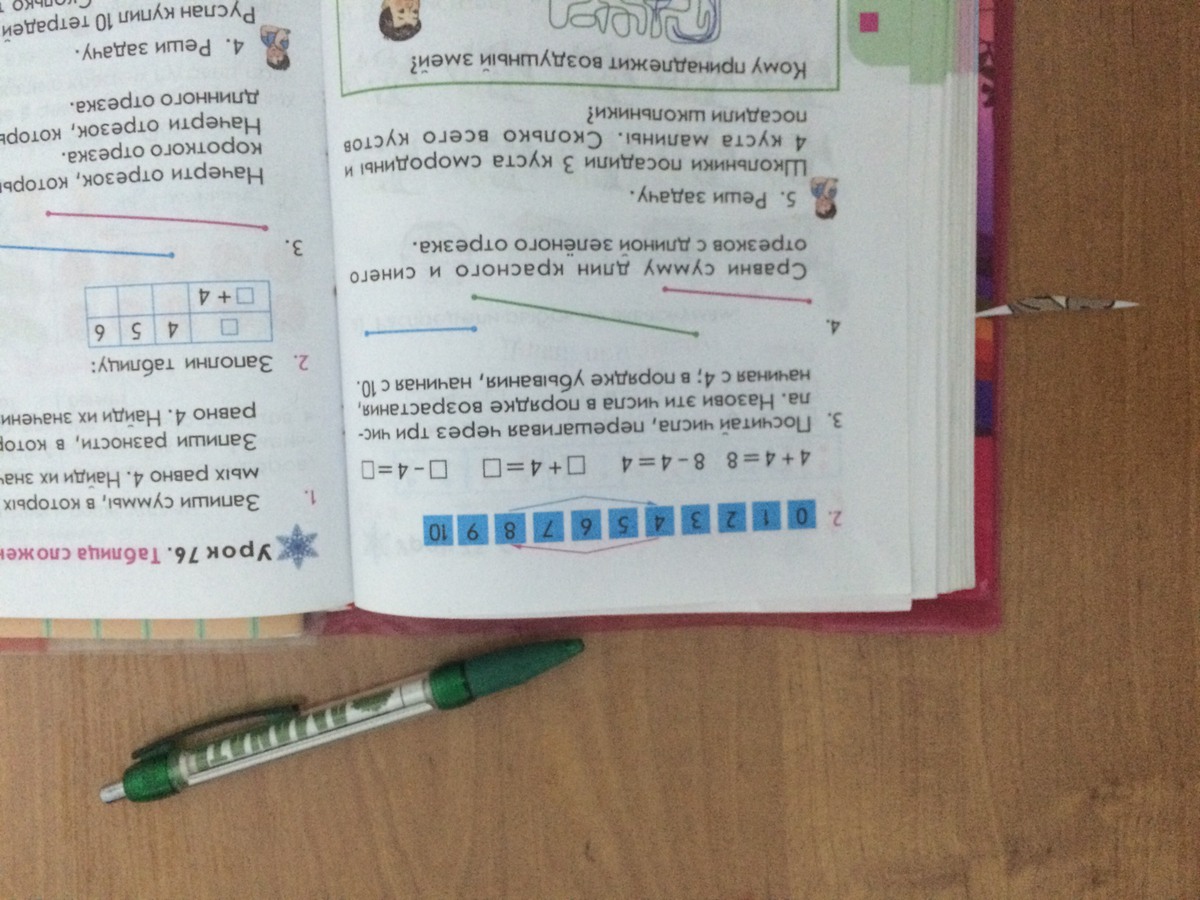 2. 0 1 2 3 4 5 6 7 8 9 10
4+4=8 8-4=4 □+4=□ □-4=□
3. Посчитай числа, перешагивая через три чис-
ла. Назови эти числа в порядке возрастания,
начиная с 4; в порядке убывания, начиная с 10.
4.
Сравни сумму длин красного и синего
отрезков с длиной зелёного отрезка.
5. Реши задачу.
Школьники посадили 3 куста смородины и
4 куста малины. Сколько всего кустов
посадили школьники?
Кому принадлежит воздушный змей?
Урок 76. Таблица сложен
1. Запиши суммы, в которых
мых равно 4. Найди их знач
Запиши разности, в котор
равно 4. Найди их значени
2. Заполни таблицу:
□ 4 5 6
□+4
3.
Начерти отрезок, которы
короткого отрезка.
Начерти отрезок, которы
длинного отрезка.
4. Реши задачу.
Руслан купил 10 тетрадей
Сколько